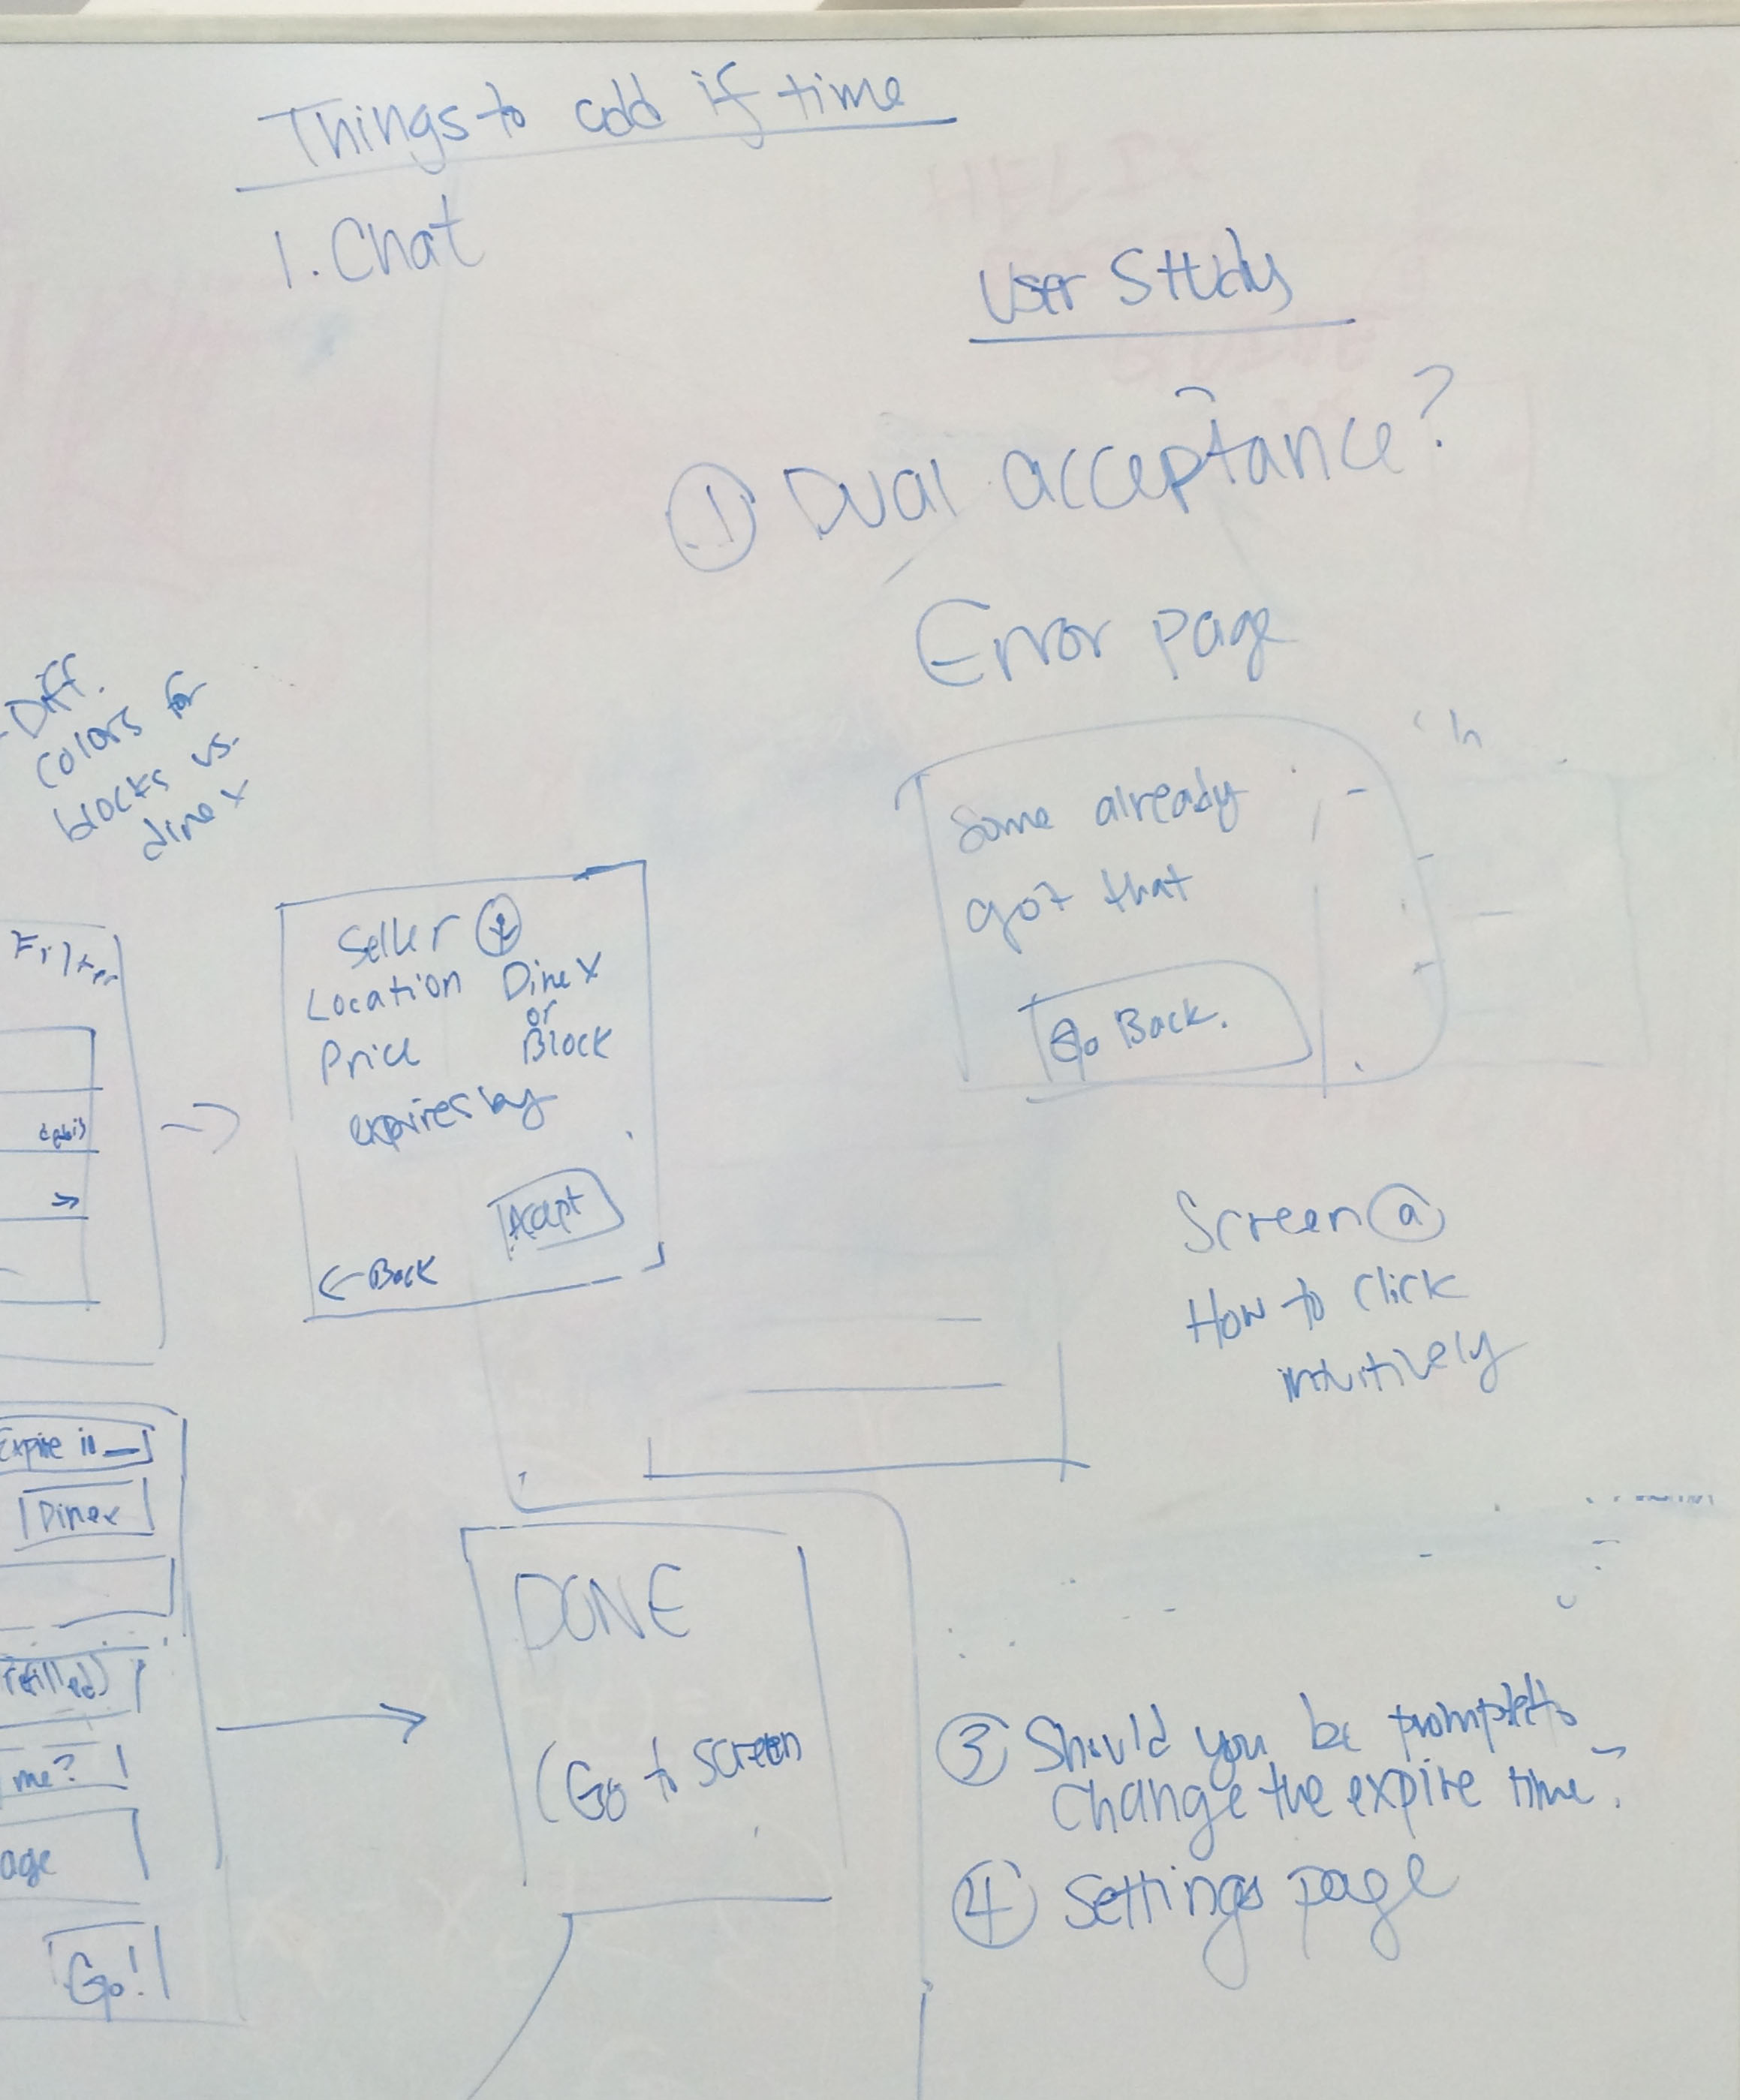 Things to add if time
1. Chat
User Study
① Dual acceptance?
Error page
Some already
got that
Go Back.
- Diff.
colors for
blocks vs.
dinex
Filter
Seller
Location DineX
or
Price Block
expires by
Accept
← Back
Screen ⓐ
How to click
intuitively
Expire in _
Dinex
me?
age
Go!
DONE
(Go to screen
③ Should you be prompted to
change the expire time?
④ Settings page